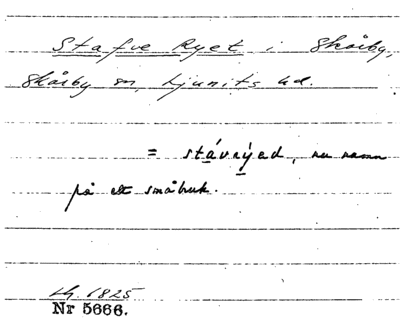 Stafve Ryet i Skårby,
Skårby sn, Ljunits hd.
= stávrýed, nu namn
på ett småbruk.
Lh. 1825
Nr 5666.